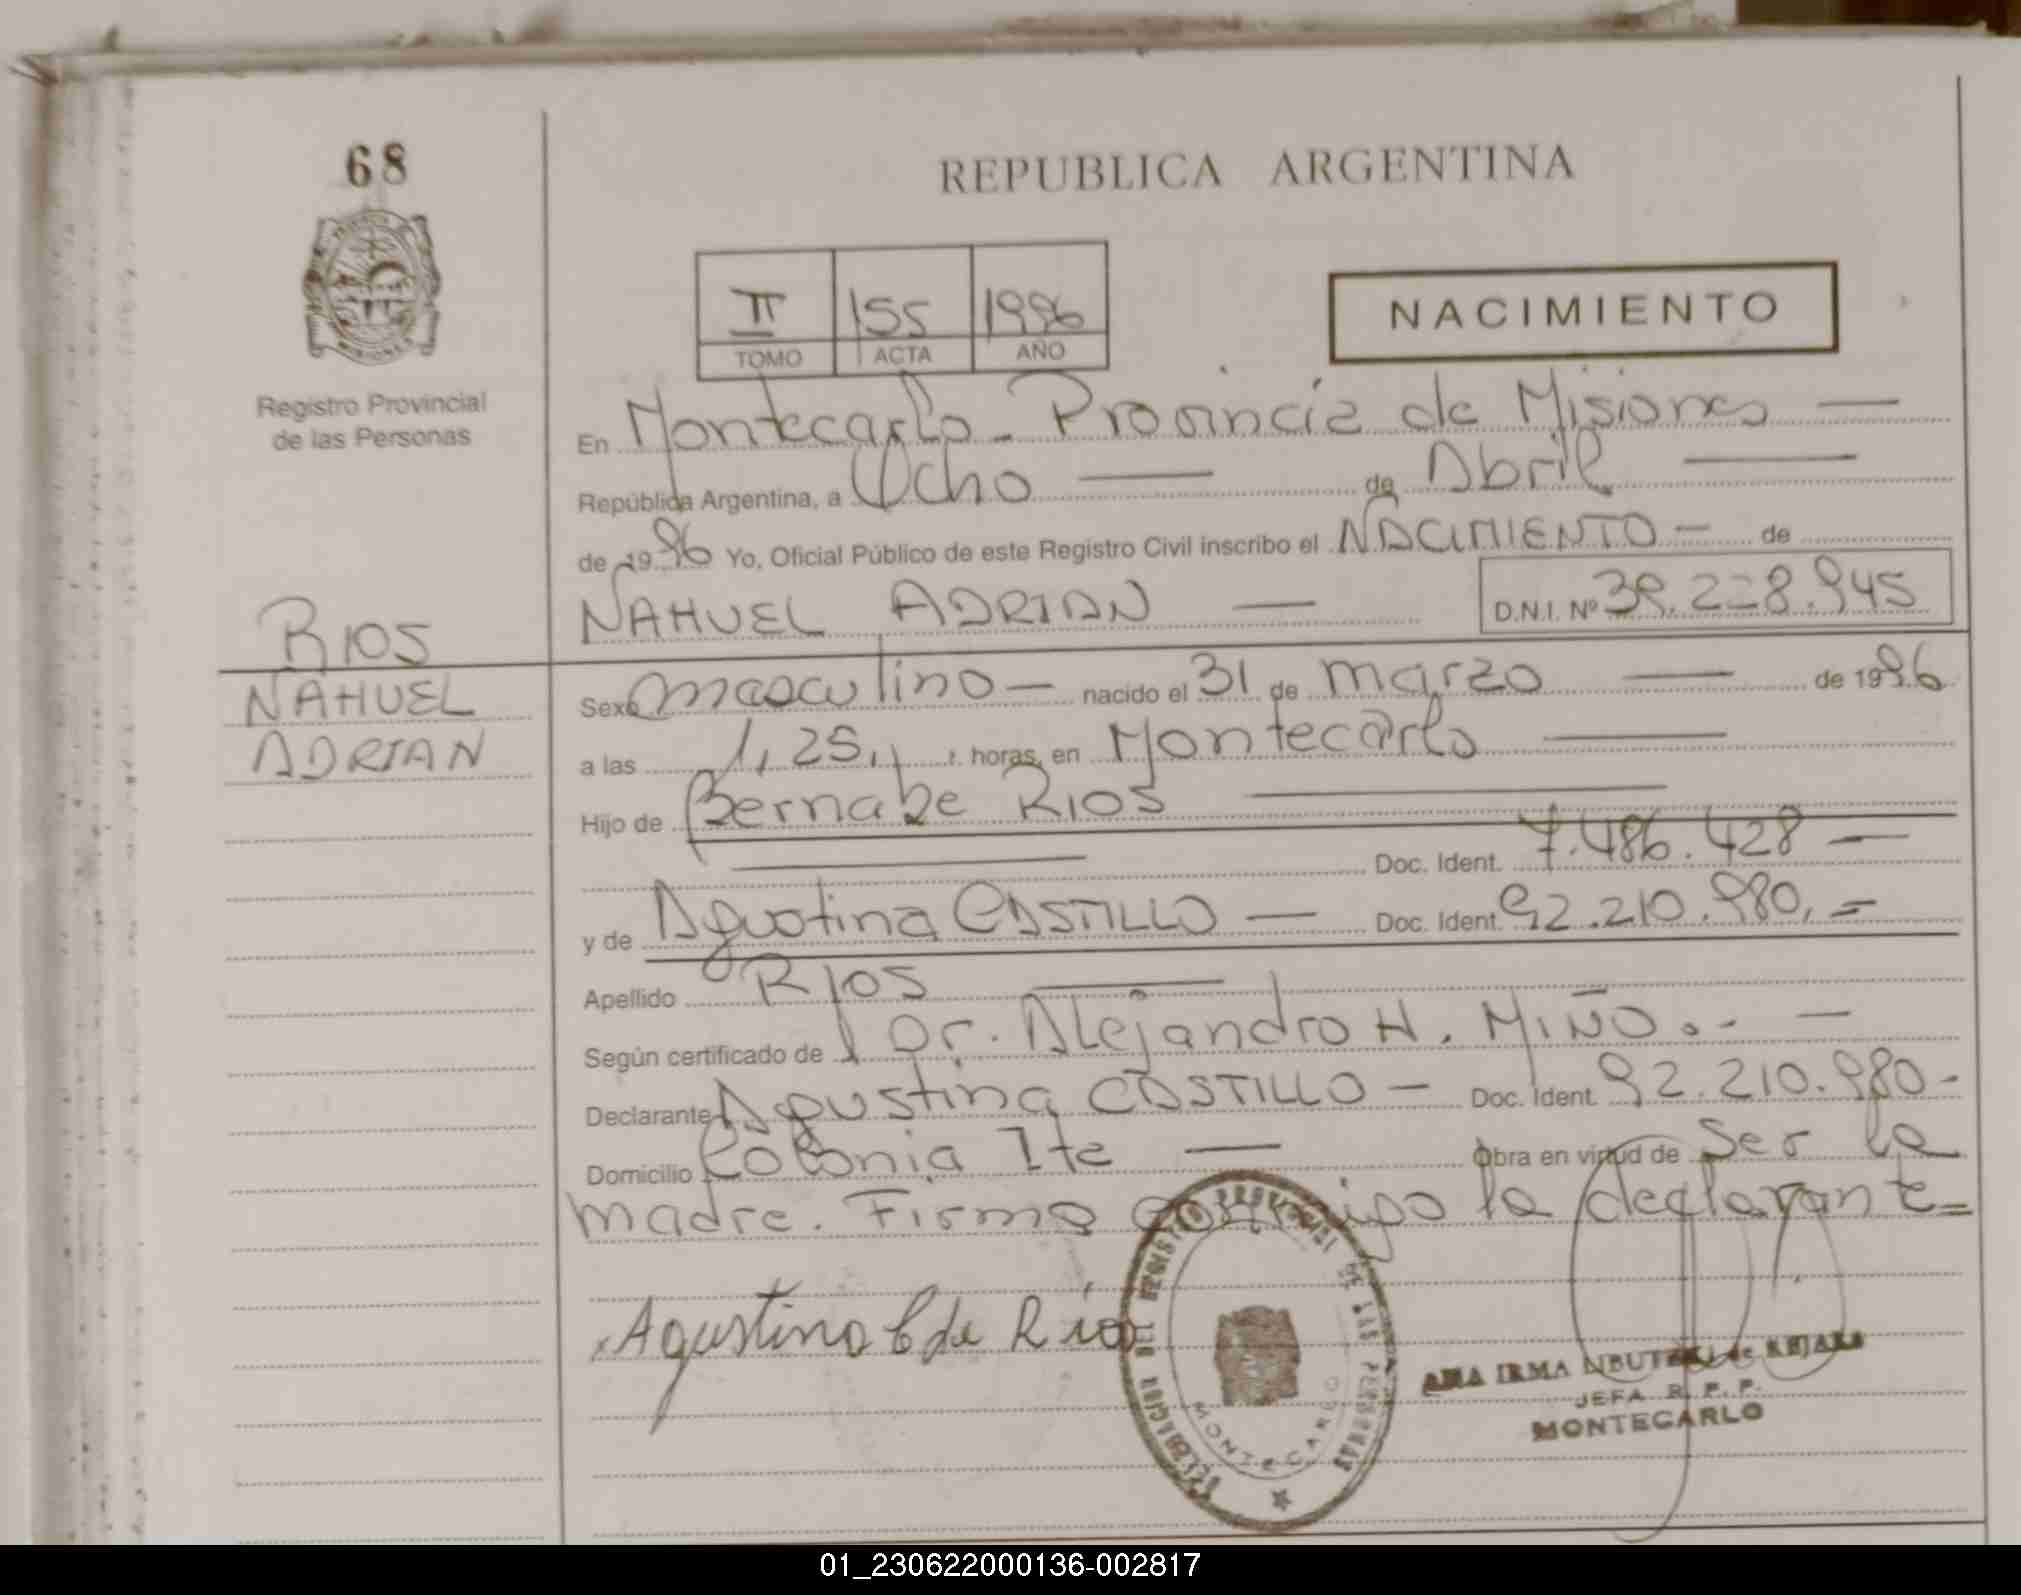 68
REPUBLICA ARGENTINA
II 155 1996
TOMO ACTA AÑO
NACIMIENTO
Registro Provincial
de las Personas
En Montecarlo - Provincia de Misiones —
República Argentina, a Ocho — de Abril —
de 1996 Yo, Oficial Público de este Registro Civil inscribo el NACIMIENTO — de
NAHUEL ADRIAN — D.N.I. Nº 39.228.945
RIOS
NAHUEL
ADRIAN
Sexo masculino — nacido el 31 de marzo — de 1996
a las 1,25, horas, en Montecarlo —
Hijo de Bernabe RIOS —
— Doc. Ident. 7.486.428 —
y de Agustina CASTILLO — Doc. Ident. 92.210.980.=
Apellido RIOS —
Según certificado de Dr. Alejandro H. MIÑO.- —
Declarante Agustina CASTILLO — Doc. Ident. 92.210.980-
Domicilio Colonia Ite — Obra en virtud de Ser la
madre. Firma conmigo la declarante=
Agustina C de Rios
DELEGACION DEL REGISTRO PROVINCIAL DE LAS PERSONAS
MONTECARLO
ANA IRMA de
JEFA R. P. P.
MONTECARLO
01_230622000136-002817